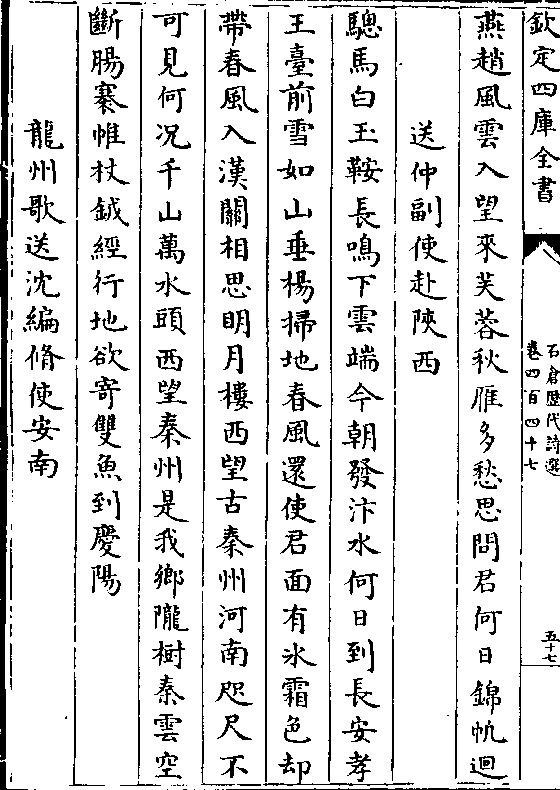 欽定四庫全書
石倉歷代詩選
卷四百四十七
五十七
燕趙風雲入望來芙蓉秋雁多愁思問君何日錦帆迴
送仲副使赴陝西
驄馬白玉鞍長鳴下雲端今朝發汴水何日到長安孝
王臺前雪如山垂楊掃地春風還使君面有氷霜色却
帶春風入漢關相思明月樓西望古秦州河南咫尺不
可見何况千山萬水頭西望秦州是我鄉隴樹秦雲空
斷腸褰帷杖鉞經行地欲寄雙魚到慶陽
龍州歌送沈編脩使安南